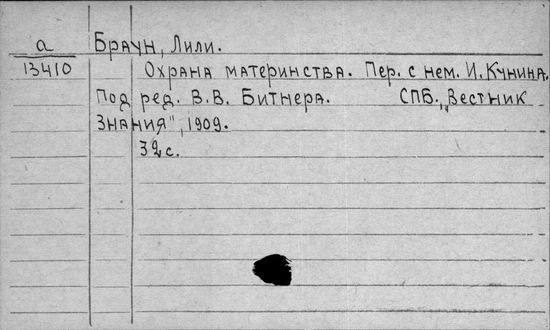 а
13410
Браун, Лили.
Охрана материнства. Пер. с нем. И. Кунина.
Под ред. В.В. Битнера. СПБ., „Вестник
Знания", 1909.
32 с.